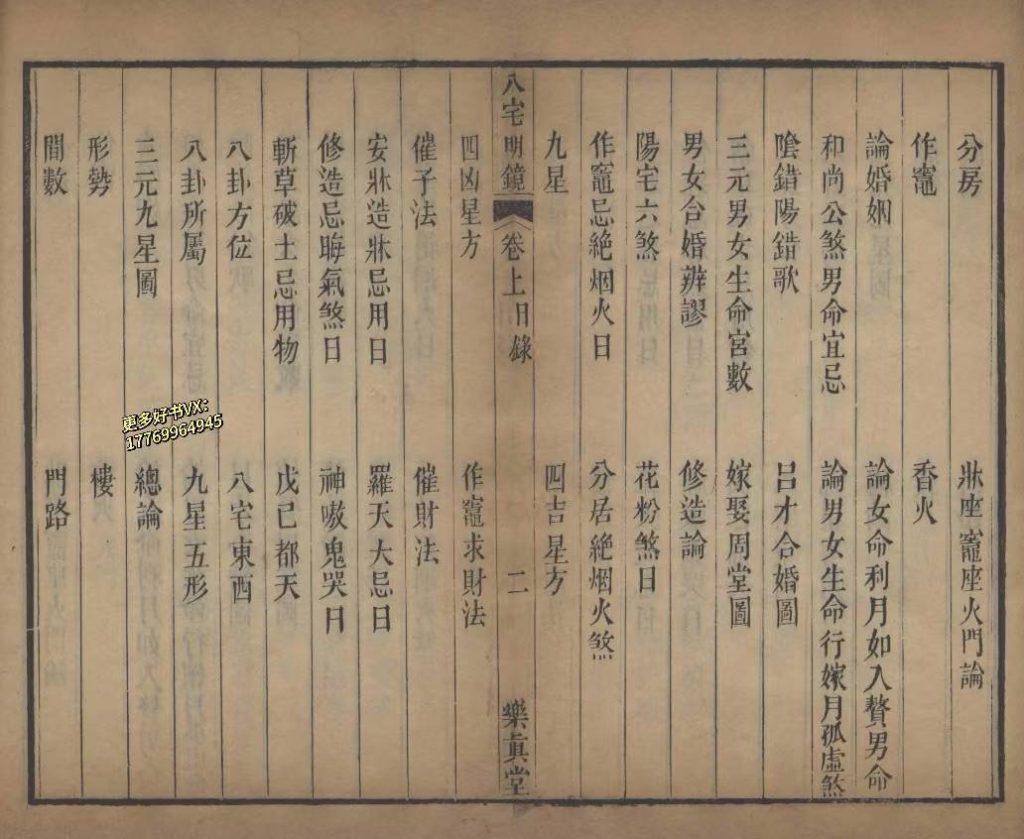 分房　牀座竈座火門論
作竈　香火
論婚姻　論女命利月如入贅男命
和尚公煞男命宜忌　論男女生命行嫁月孤虛煞
隂錯陽錯歌　呂才合婚圖
三元男女生命宮數　嫁娶周堂圖
男女合婚辨謬　修造論
陽宅六煞　花粉煞日
作竈忌絶烟火日　分居絶烟火煞
九星　四吉星方
八宅明鏡　卷上目錄　二　樂真堂
四凶星方　作竈求財法
催子法　催財法
安牀造牀忌用日　羅天大忌日
修造忌晦氣煞日　神嗷鬼哭日
斬草破土忌用物　戊己都天
八卦方位　八宅東西
八卦所屬　九星五形
三元九星圖　總論
形勢　樓
間數　門路
更多好书VX：
17769964945